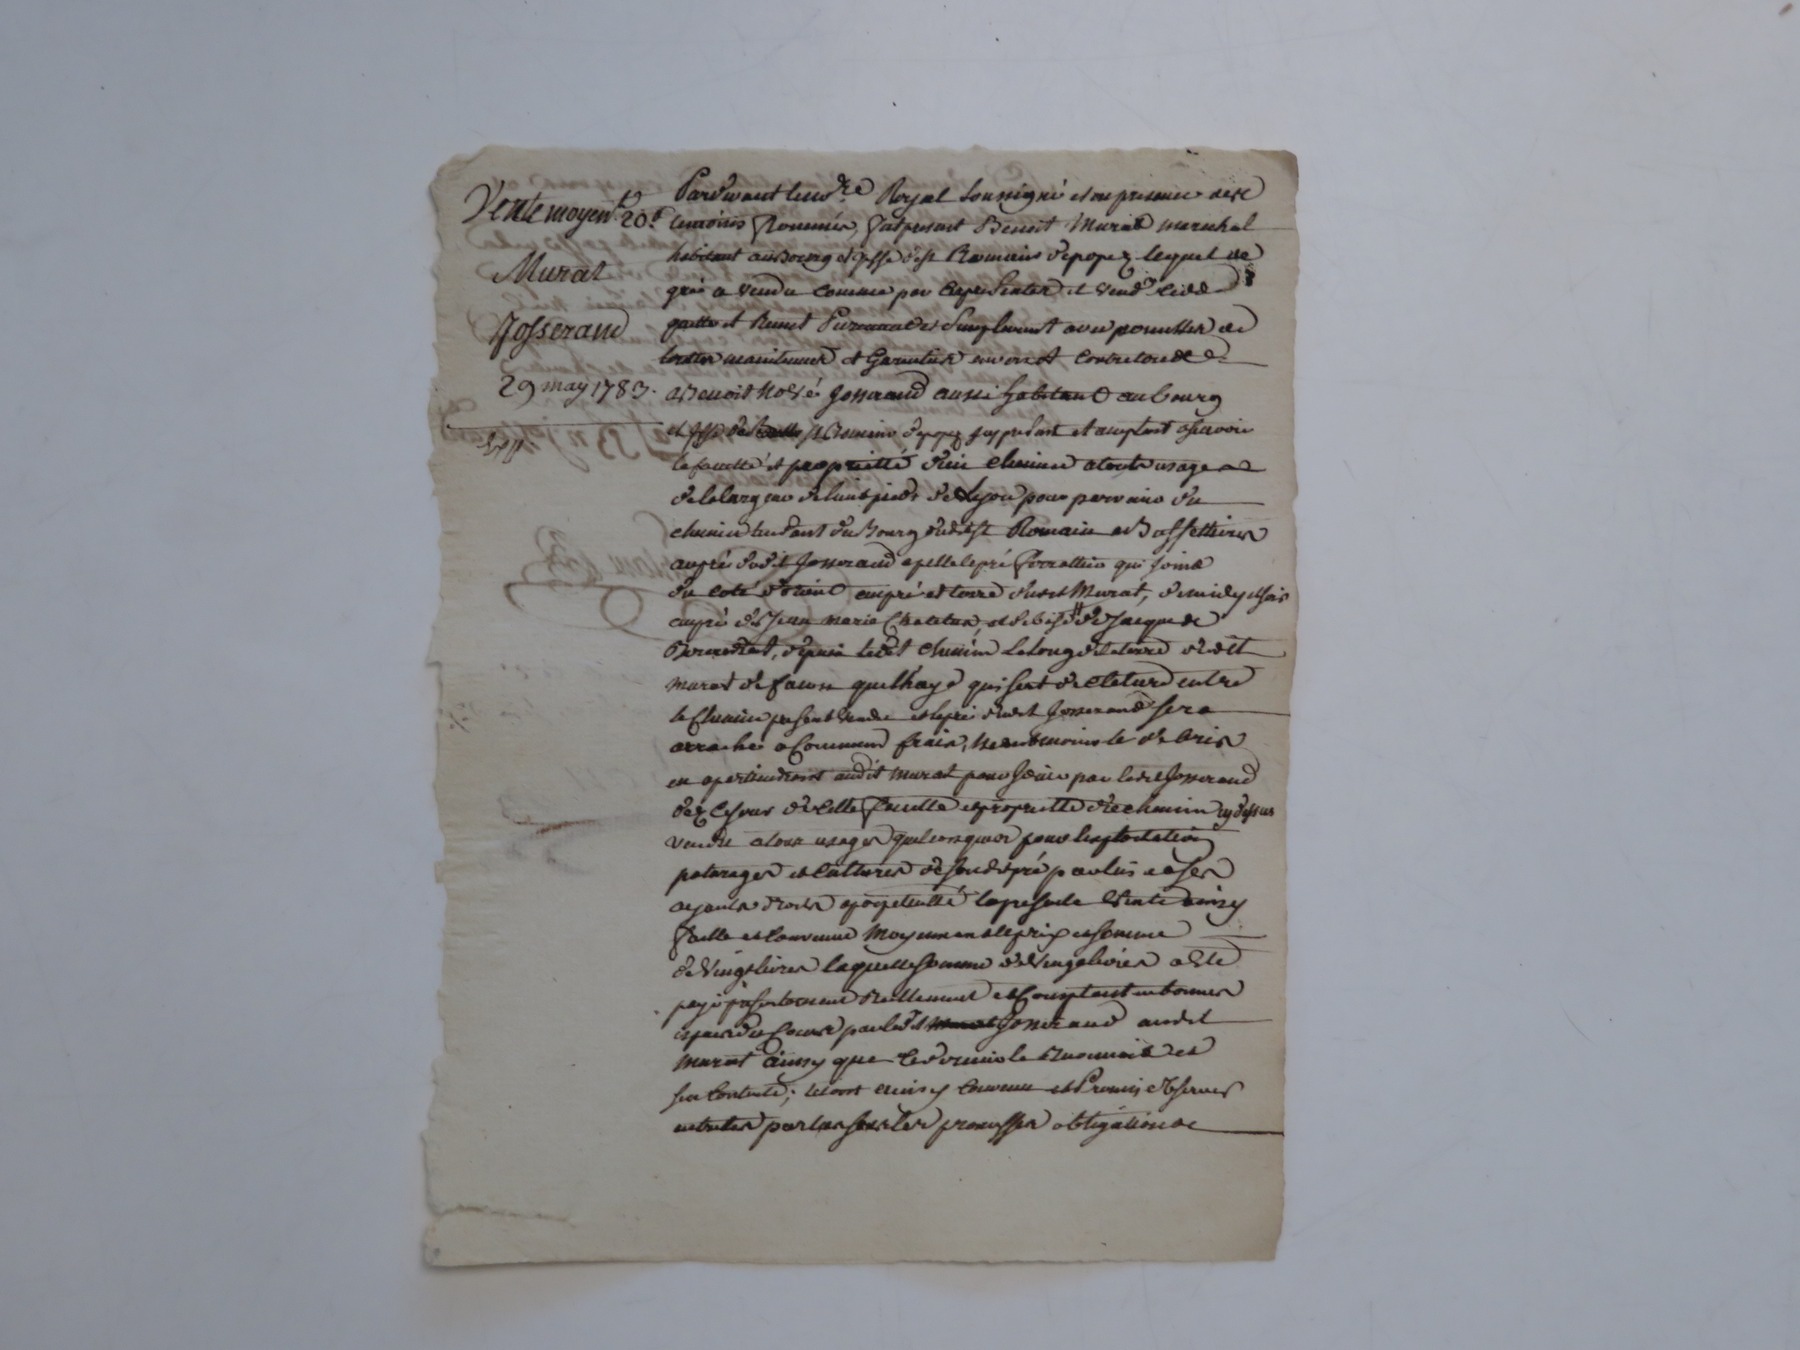 Vente moyent. 20#
Murat
Josserand
29 may 1783.
Exp.
Pardevant le no.re Royal soussigné et en presence des
temoins nommés, fut present Benoit Murat marechal
habitant au Bourg et psse de st Romain de popey lequel de
gré a vendu comme par ces presentes il vend cede
quitte et Remet purement et simplement avec promesse de
maintenue et Garentie envers et contre tous
a Benoit Josserand aussi habitant au bourg
et psse de st Romain de popey present et acceptant a scavoir
la faculté et proprietté d'un chemin a toute usage
de la largeur de huit pieds de Lyon pour parvenir du
chemin tendant du Bourg dudt st Romain
au pré dudit Josserand apellé le pré qui joint
du coté d'orient au pré et terre dudt Murat, de midy et soir
au pré de Jean marie Chatelus, et de bise de Jacque
depuis ledt chemin le long de la terre dudt
murat de facon que l'haye qui sert de cloture entre
le chemin present vendu et le pré dudt Josserand sera
arrachée a Commun fraix, neantmoins le debris
en apartiendront audit murat pour jouir par ledt Josserand
dez ce jour de cette faculté et propriette de chemin cy dessus
vendu a tous usages quelconques pour l'exploitation
paturages et cultures de son dt pré par lui et ses
ayants droits a perpetuitté la presente vente ainsy
faitte et convenue moyennant le prix et somme
de vingt livres laquelle somme de vingt livres a été
payé presentement reellement et comptant en bonnes
especes de cours par ledt Josserand audit
murat ainsy que ce dernier le reconnoit et
s'en contente; le tout ainsy convenu et Promis observer
entre les parties par les promesses obligations